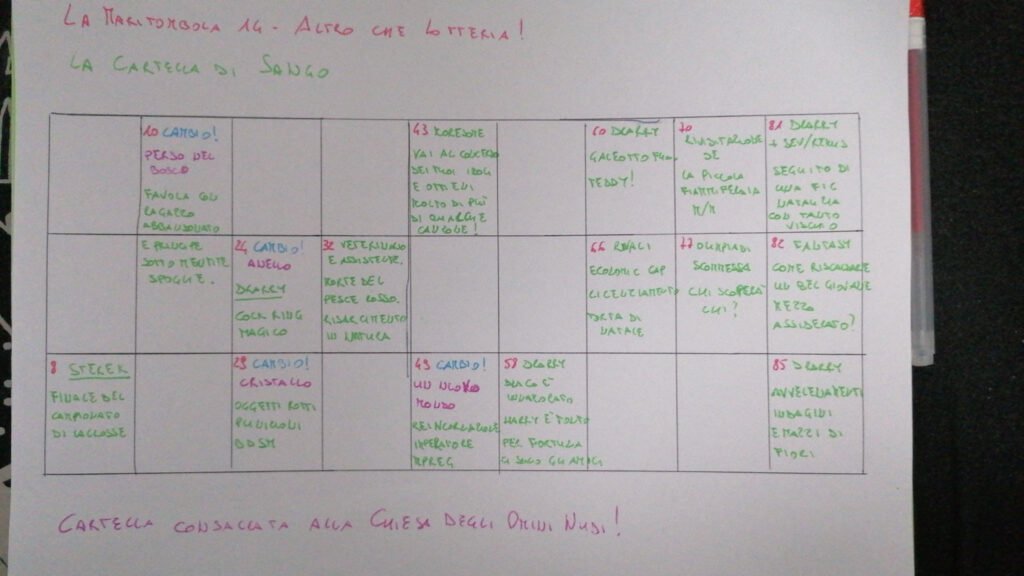 LA MARITOMBOLA 14 - ALTRO CHE LOTTERIA!
LA CARTELLA DI SANGO
10 CAMBIO!
PERSO NEL
BOSCO
FAVOLA CON
RAGAZZO
ABBANDONATO
E PRINCIPE
SOTTO MENTITE
SPOGLIE.
43 KOREDOME
VAI AL CONCERTO
DEI TUOI IDOLI
E OTTIENI
MOLTO DI PIÙ
DI QUALCHE
CANZONE!
60 DRARRY
GALEOTTO FU
TEDDY!
70
RIVISITAZIONE
DE
LA PICCOLA
FIAMMIFERAIA
M/M
81 DRARRY
+ SEV/REMUS
SEGUITO DI
UNA FIC
NATALIZIA
CON TANTO
VISCHIO
24 CAMBIO!
ANELLO
DRARRY
COCK RING
MAGICO
32 VETERINARIO
E ASSISTENTE.
MORTE DEL
PESCE ROSSO.
RISARCIMENTO
IN NATURA
66 RIVALI
ECONOMIC CAP
LICENZIAMENTO
TORTA DI
NATALE
77 OLIMPIADI
SCOMMESSA
CHI SCOPERÀ
CHI?
82 FANTASY
COME RISCALDARE
UN BEL GIOVANE
MEZZO
ASSIDERATO?
8 STEREK
FINALE DEL
CAMPIONATO
DI LACROSSE
29 CAMBIO!
CRISTALLO
OGGETTI ROTTI
PUNIZIONI
BDSM
49 CAMBIO!
UN NUOVO
MONDO
REINCARNAZIONE
IMPERATORE
MPREG
58 DRARRY
DRACO È
INNAMORATO
HARRY È TONTO
PER FORTUNA
CI SONO GLI AMICI
85 DRARRY
AVVELENAMENTI
INDAGINI
E MAZZI DI
FIORI
CARTELLA CONSACRATA ALLA CHIESA DEGLI OMINI NUDI!